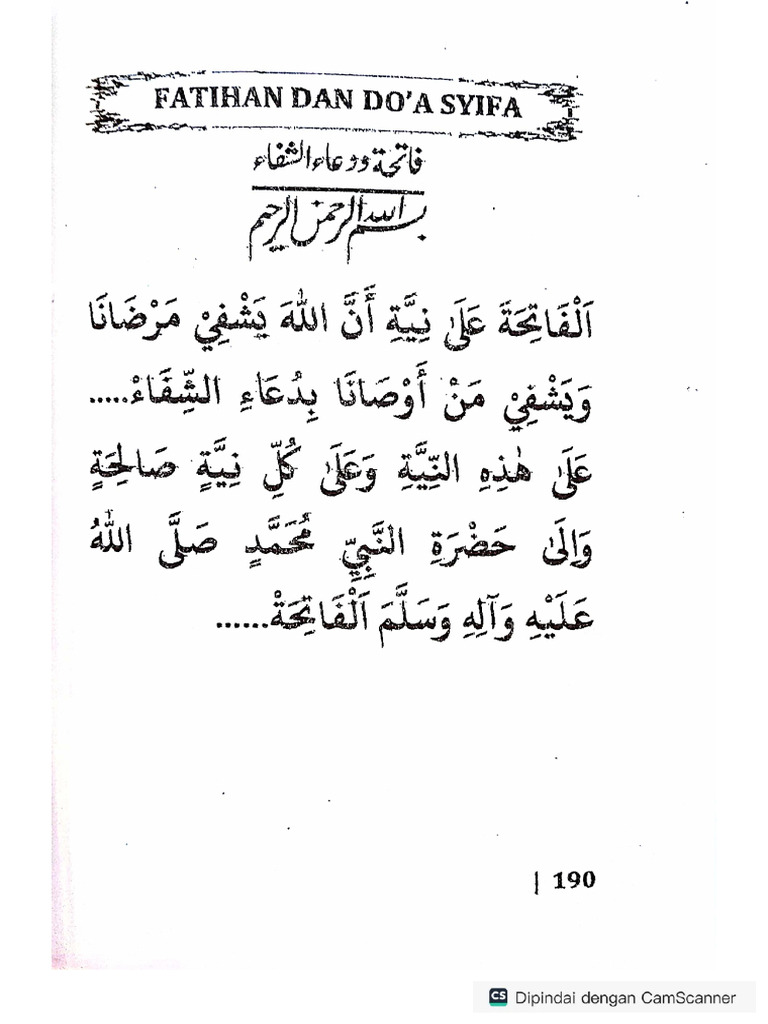 FATIHAN DAN DO'A SYIFA
فاتحة ودعاء الشفاء
بسم الله الرحمن الرحيم
اَلْفَاتِحَةَ عَلَى نِيَّةِ أَنَّ اللهَ يَشْفِيْ مَرْضَانَا
وَيَشْفِيْ مَنْ أَوْصَانَا بِدُعَاءِ الشِّفَاءْ.....
عَلَى هٰذِهِ النِّيَّةِ وَعَلَى كُلِّ نِيَّةٍ صَالِحَةٍ
وَاِلَى حَضْرَةِ النَّبِيِّ مُحَمَّدٍ صَلَّى اللهُ
عَلَيْهِ وَآلِهِ وَسَلَّمَ اَلْفَاتِحَةْ......
| 190
CS Dipindai dengan CamScanner